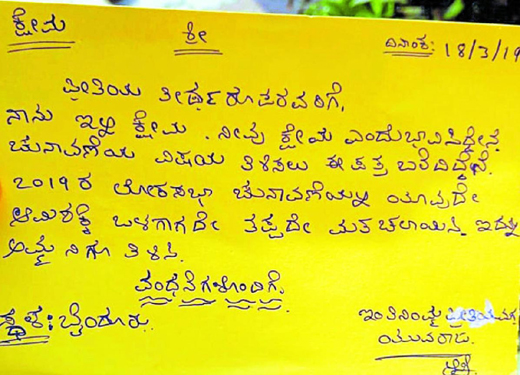 ಕ್ಷೇಮ ಶ್ರೀ ದಿನಾಂಕ: 18/3/19
ಪ್ರೀತಿಯ ತೀರ್ಥರೂಪರವರಿಗೆ,
ನಾನು ಇಲ್ಲಿ ಕ್ಷೇಮ. ನೀವು ಕ್ಷೇಮ ಎಂದು ಭಾವಿಸಿದ್ದೇನೆ
ಚುನಾವಣೆಯ ವಿಷಯ ತಿಳಿಸಲು ಈ ಪತ್ರ ಬರೆದಿದ್ದೇನೆ.
೨೦೧೯ರ ಲೋಕಸಭಾ ಚುನಾವಣೆಯನ್ನು ಯಾವುದೇ
ಆಮಿಶಕ್ಕೆ ಒಳಗಾಗದೇ ತಪ್ಪದೇ ಮತ ಚಲಾಯಿಸಿ. ಇದನ್ನು
ಅಮ್ಮನಿಗೂ ತಿಳಿಸಿ.
ವಂಧನೆಗಳೊಂದಿಗೆ.
ಸ್ಥಳ: ಬೈಂದೂರು.
ಇಂತಿ ನಿಮ್ಮ ಪ್ರೀತಿಯ ಮಗ
ಯುವರಾಜ.